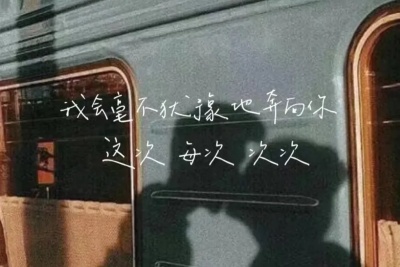 我会毫不犹豫地奔向你
这次 每次 次次